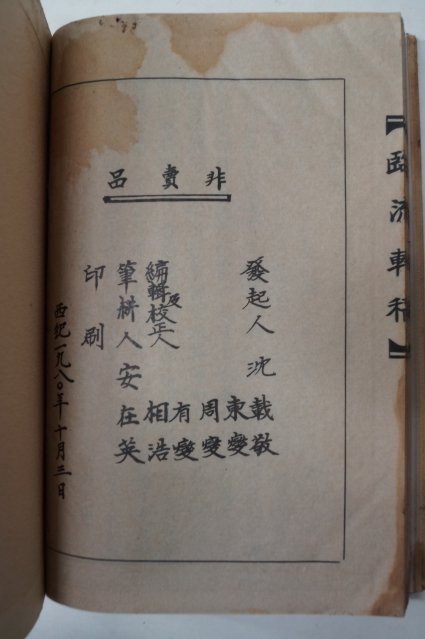 【臨流軒稿】
非賣品
發起人 沈 載敬
東燮
周燮
有燮
編輯及校正人 相浩
筆耕人 安在英
印刷
西紀一九八〇年十月三日